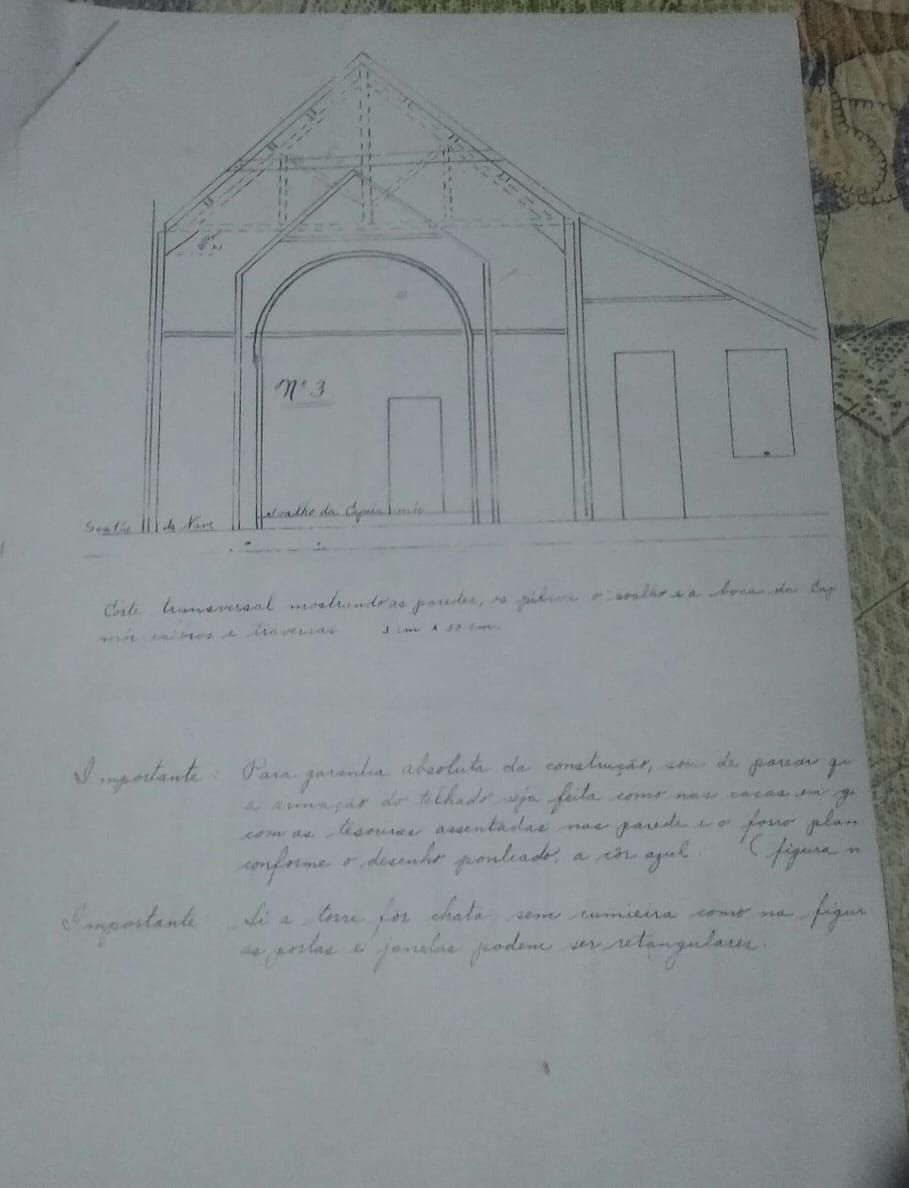 Nº 3
Soalho da Nave
soalho da Capela mór
Corte transversal mostrando as paredes, os pilares o soalho e a boca da Cap
mór caibros e travessas
Importante: Para garantia absoluta da construção, sou de parecer qu
a armação do telhado seja feita como nas casas em ge
com as tesouras assentadas nas parede e o forro plan
conforme o desenho ponteado, a côr azul. (figura n
Importante Si a torre for chata sem cumieira como na figur
as portas e janelas podem ser retangulares.